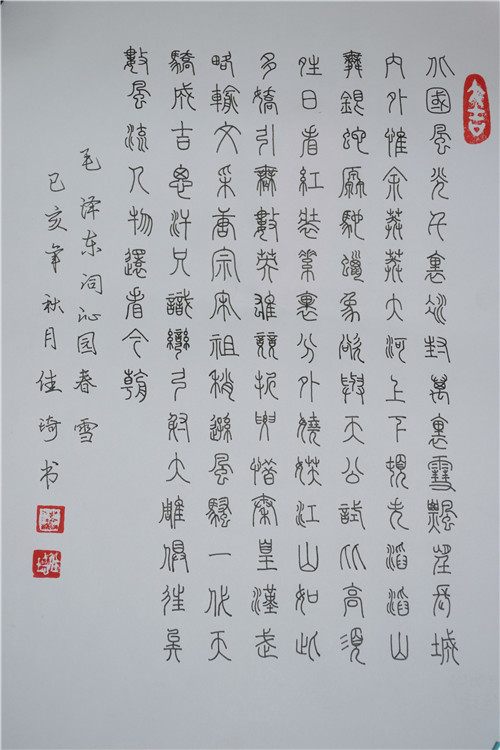 北國風光千裏冰封萬裏雪飄望長城
內外惟余莽莽大河上下頓失滔滔山
舞銀蛇原馳蠟象欲與天公試比高須
晴日看紅裝素裹分外嬈妖江山如此
多嬌引無數英雄競折腰惜秦皇漢武
略輸文采唐宗宋祖稍遜風騷一代天
驕成吉思汗只識彎弓射大雕俱往矣
數風流人物還看今朝
毛泽东词沁园春雪
己亥年秋月佳琦书